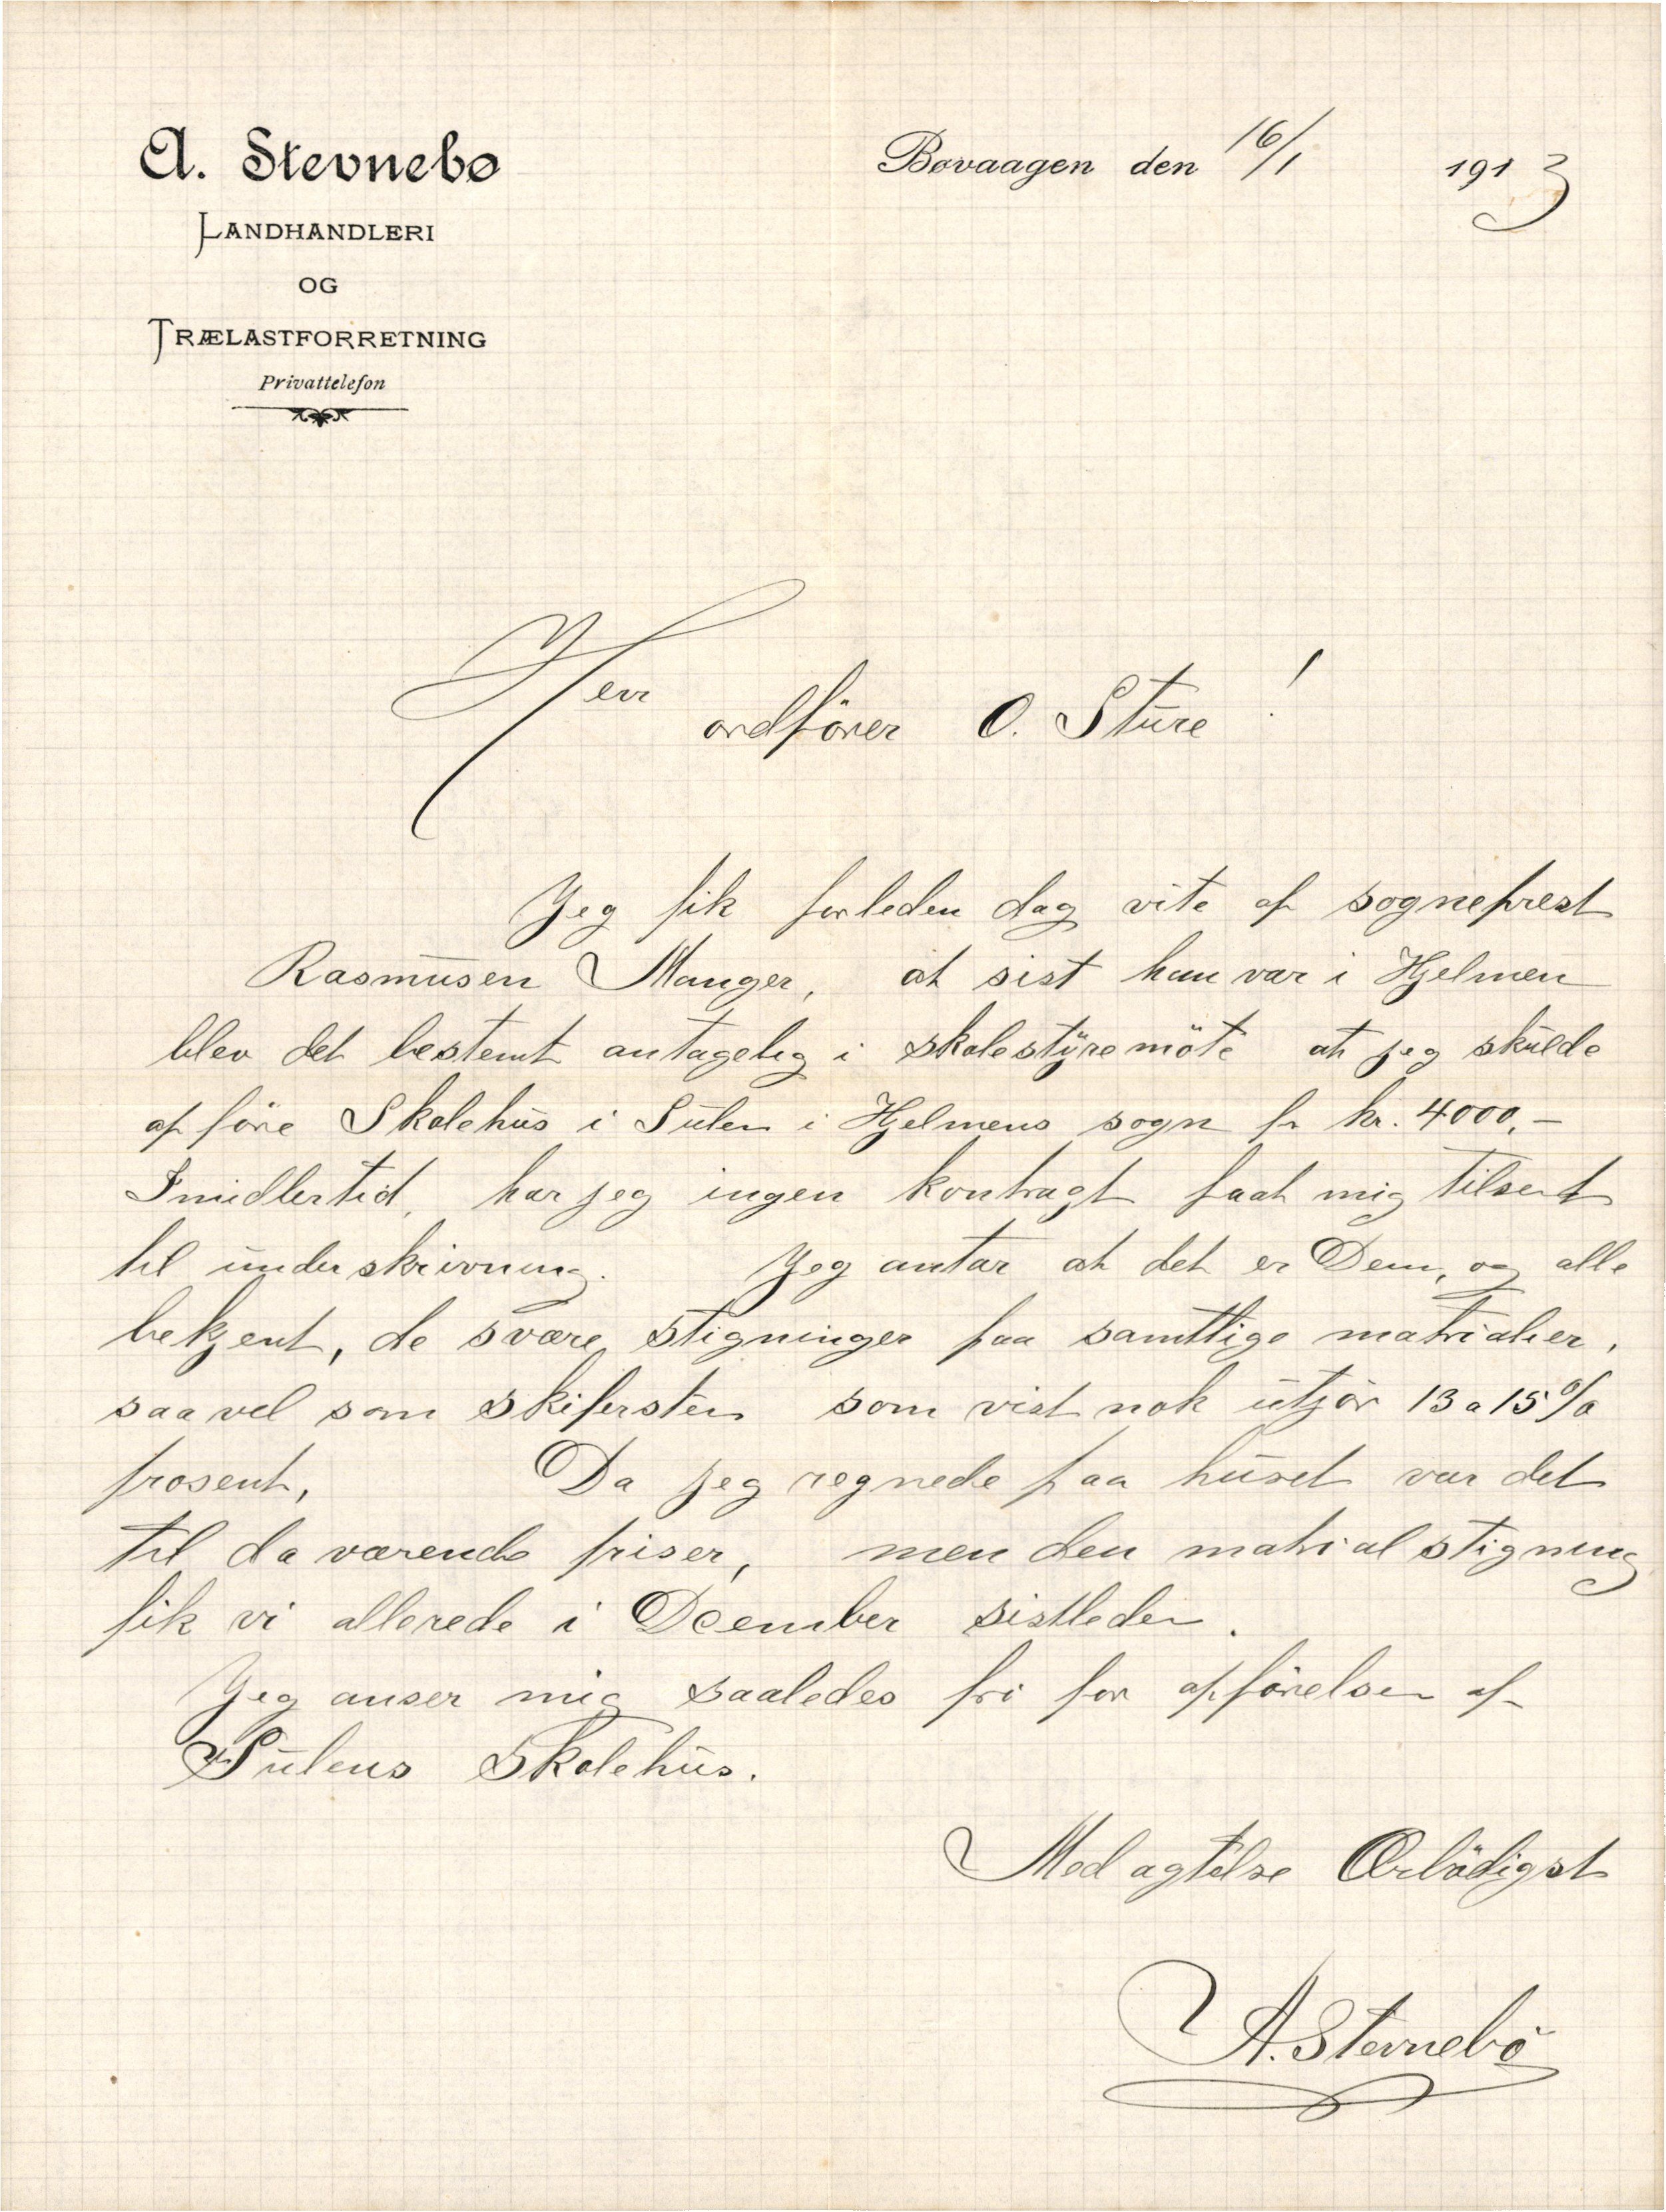 A. Stevnebø
LANDHANDLERI
OG
TRÆLASTFORRETNING
Privattelefon
Bøvaagen den 16/1 1913
Herr
ordfører O. Sture!
Jeg fik forleden dag vite af sogneprest
Rasmusen Manger, at sist han var i Hjelmen
blev det bestemt antagelig i skolestyremöte at jeg skulde
opföre Skolehus i Sulen i Hjelmens sogn fr kr. 4000.-
Imidlertid, har jeg ingen kontragt faat mig tilsent
til underskrivning. Jeg antar at det er Dem, og alle
bekjent, de svære stigninger paa samtlige matrialier,
saavel som skifersten som vist nok utjör 13 a 15 %
prosent, Da jeg regnede paa huset var det
til daværende priser, men den matrial stigning
fik vi allerede i Deember sistleden.
Jeg anser mig saaledes fri for opförelsen af
Sulens Skolehus.
Med agtelse Ærbödigst
A. Stevnebö